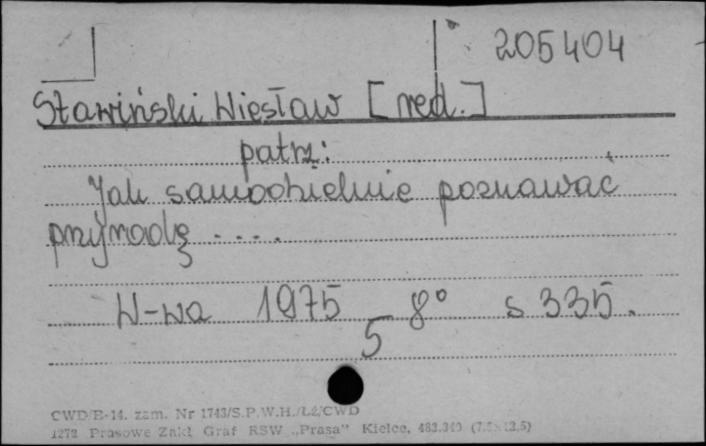 205404
Stawiński Wiesław [red.]
patrz:
Jak samodzielnie poznawać
przyrodę ....
W-wa 1975 8° s 335.
5
CWD/B-14. zam. Nr 1743/S.P.W.H./Łź/CWD
1272 Prasowe Zakł Graf RSW „Prasa" Kielce, 483.349 (7.5×12,5)